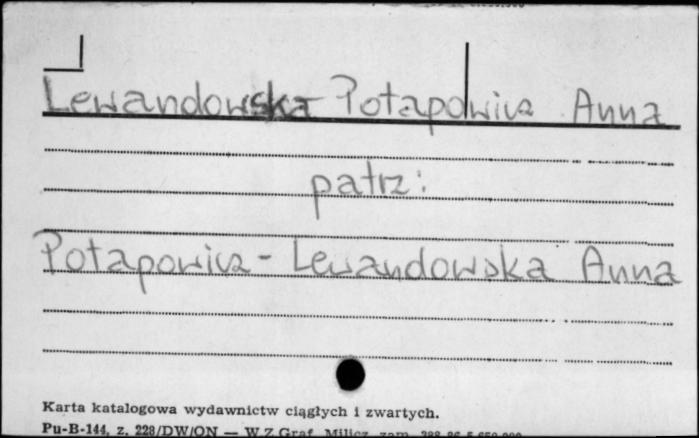 Lewandowska Potapowicz Anna
patrz:
Potapowicz - Lewandowska Anna
Karta katalogowa wydawnictw ciągłych i zwartych.
Pu-B-144, z. 228/DW/ON — W.Z.Graf. Milicz, zam.